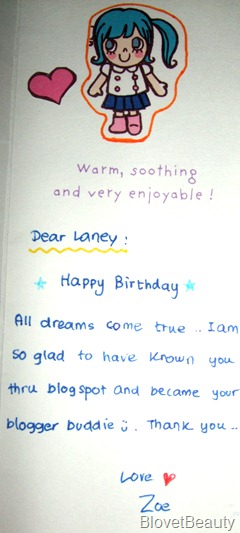 Warm, soothing
and very enjoyable !
Dear Laney :
Happy Birthday
All dreams come true .. I am
so glad to have known you
thru blogspot and became your
blogger buddie ü . Thank you ..
Love
Zoe
BlovetBeauty